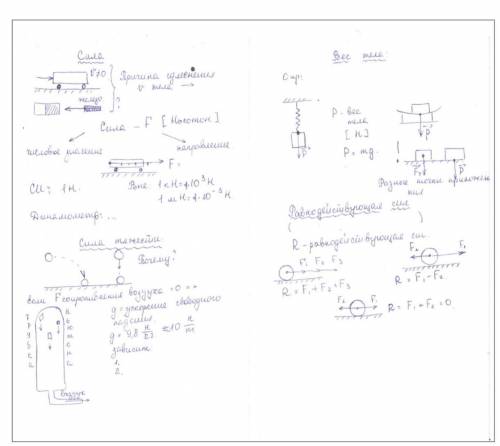 Сила
v≠0
Причина изменения
v тела →
железо
?
Сила – F [Ньютон]
числовое значение
направление
F =
СИ: 1Н.
Вне: 1кН = 1·10³Н
1мН = 1·10⁻³Н
Динамометр: ...
Сила тяжести.
Почему?
если Fсопротивления воздуха = 0
g = ускорение свободного
падения
g = 9,8 Н/кг ≈ 10
зависит
1.
2.
Трубка
Ньютона
воздух
Вес тела.
Опр:
P - вес
тела
[Н]
P = mg.
P
P
Fт
P
!
Разные точки приложе
ния
Равнодействующая сил
( )
R - равнодействующая сил
F₁ F₂ F₃
R = F₁ + F₂ + F₃
F₂ F₁
R = F₁ - F₂.
F₂ F₁
R = F₁ - F₂ = 0